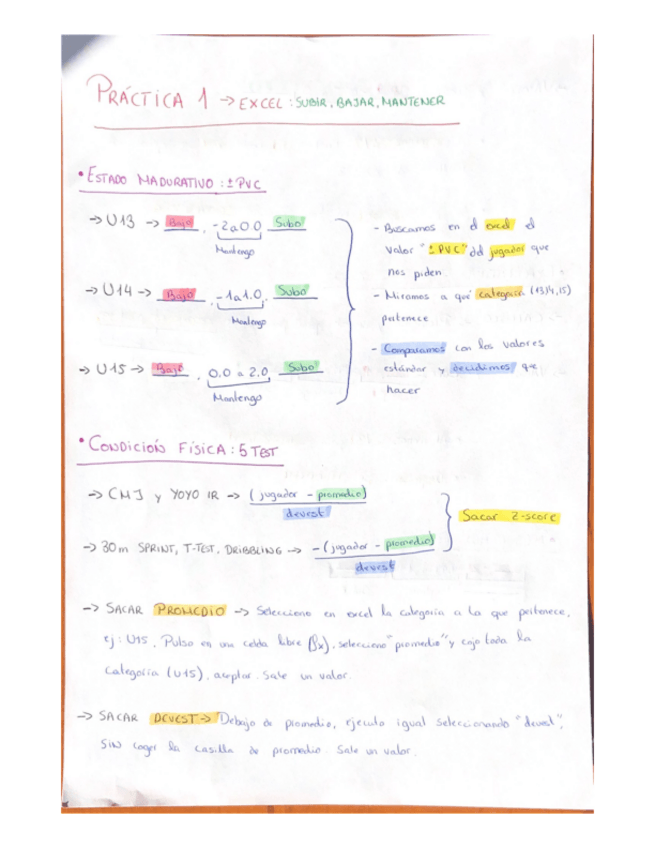 PRÁCTICA 1 → EXCEL : SUBIR, BAJAR, MANTENER
• ESTADO MADURATIVO : ± PVC
→ U13 → Bajo , -2 a 0.0 Subo
Mantengo
→ U14 → Bajo , -1 a 1.0, Subo
Mantengo
→ U15 → Bajo , 0.0 a 2.0 Subo
Mantengo
- Buscamos en el excel el
valor "± PVC" del jugador que
nos piden
- Miramos a qué categoría (13,14,15)
pertenece
- Comparamos con los valores
estándar y decidimos que
hacer
• CONDICIÓN FÍSICA : 5 TEST
→ CMJ y YOYO IR → (jugador - promedio)
devest
→ 30m SPRINT, T-TEST, DRIBBLING → -(jugador - promedio)
devest
Sacar Z-score
→ SACAR PROMEDIO → Selecciono en excel la categoría a la que pertenece,
ej: U15. Pulso en una celda libre (fx), selecciono "promedio" y cojo toda la
categoría (U15), aceptar. Sale un valor.
→ SACAR DEVEST → Debajo de promedio, ejecuto igual seleccionando "devest",
SIN coger la casilla de promedio. Sale un valor.